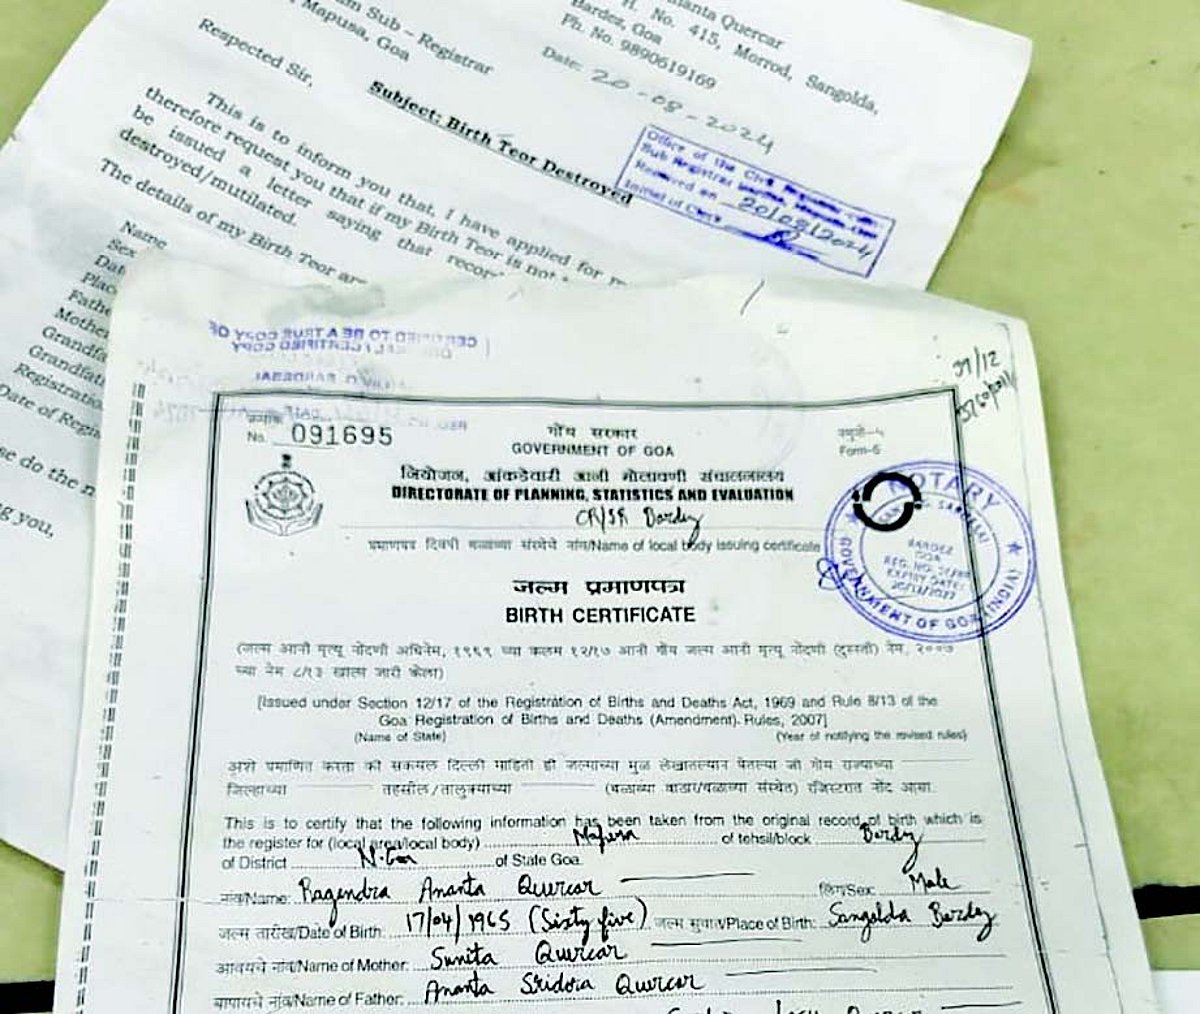 Sub - Registrar
Mapusa, Goa
Quercar
H. No. 415, Morrod, Sangolda,
Bardez, Goa
Ph. No. 9890619169
Date: 20-08-2024
Respected Sir,
Subject: Birth Teor Destroyed
This is to inform you that, I have applied for
therefore request you that if my Birth Teor is not
be issued a letter saying that
destroyed/mutilated.
The details of my Birth Teor
Office of the Civil
Sub Registrar
Received on 20/08/2024
Name
Sex
Registration
Date of
se do the n
ng you,
CERTIFIED TO BE A TRUE COPY OF
CERTIFIED COPY
No. 091695
गोंय सरकार
GOVERNMENT OF GOA
Form-5
नियोजन, आंकडेवारी आनी मोलावणी संचालनालय
DIRECTORATE OF PLANNING, STATISTICS AND EVALUATION
CR/SR Bardez
प्रमाणपत्र दिवपी थळाव्या संस्थेचे नांव/Name of local body issuing certificate
NOTARY
BARDEZ
GOA
GOVERNMENT OF GOA (INDIA)
जल्म प्रमाणपत्र
BIRTH CERTIFICATE
(जल्म आनी मृत्यू नोंदणी अधिनेम, १९६९ च्या कलम १२/१७ आनी गोंय जल्म आनी मृत्यू नोंदणी (दुरुस्ती) नेम, २००७
च्या नेम ८/१३ खाला जारी केला)
[Issued under Section 12/17 of the Registration of Births and Deaths Act, 1969 and Rule 8/13 of the
Goa Registration of Births and Deaths (Amendment). Rules, 2007]
(Name of State) (Year of notifying the revised rules)
अशें प्रमाणित करता की सकयल दिल्ली माहिती ही जल्माच्या मुळ लेखातल्यान घेतल्या जी गोंय राज्याच्या
जिल्हाच्या तहसील/तालुक्याच्या (थळाव्या वाठार/थळाव्या संस्थेत) रजिस्टरात नोंद आसा.
This is to certify that the following information has been taken from the original record of birth which is
the register for (local area/local body) Mapusa of tehsil/block Bardez
of District N. Goa of State Goa.
नांव/Name: Ragendra Ananta Quercar लिंग/Sex: Male
जल्म तारीख/Date of Birth: 17/04/1965 (Sixty five) जल्म सुवात/Place of Birth: Sangolda Bardez
आवयचें नांव/Name of Mother: Sunita Quercar
बापायचें नांव/Name of Father: Ananta Sridora Quercar